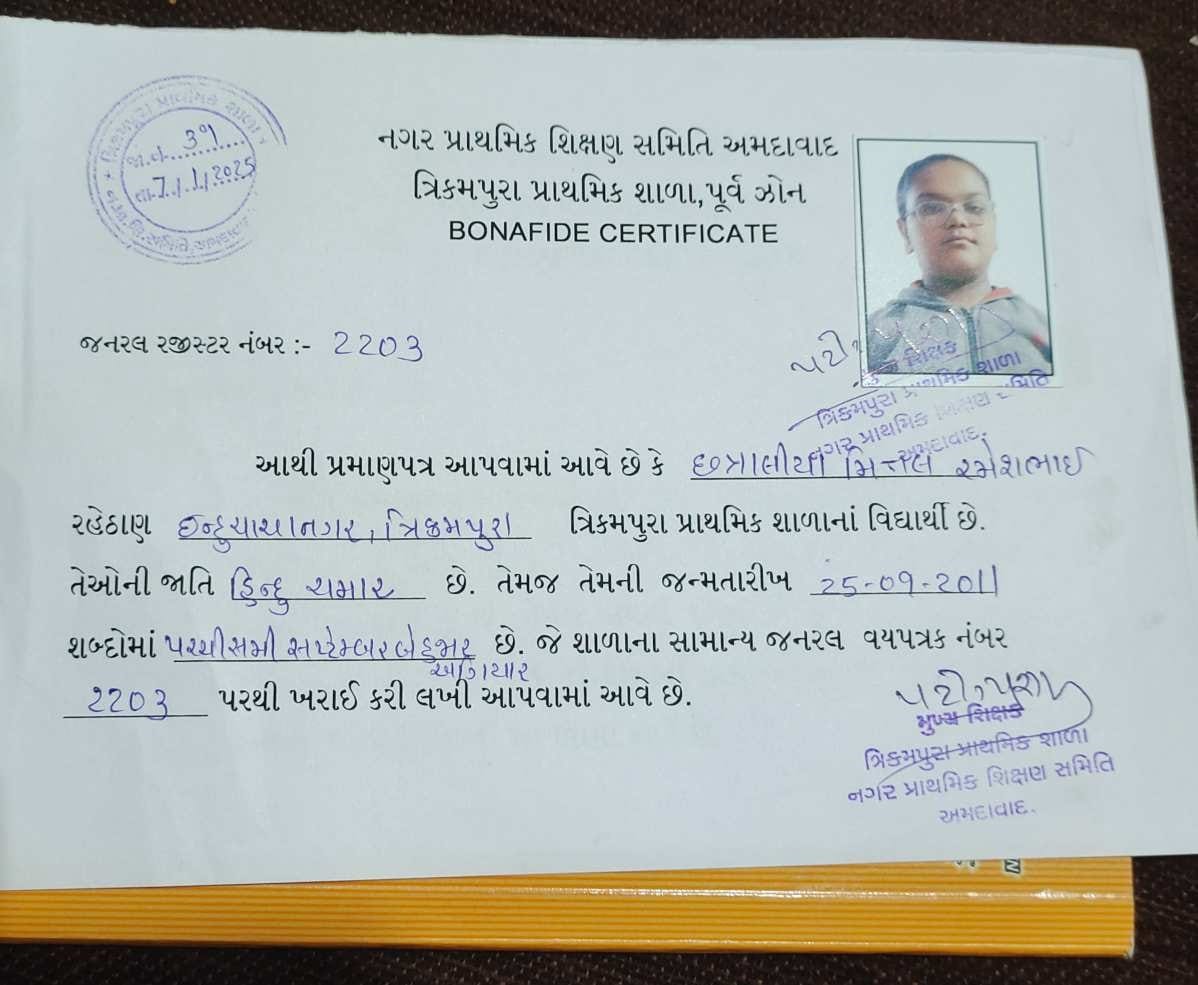 ત્રિકમપુરા પ્રાથમિક શાળા
જા.નં. 31
તા. 7/1/2025
નગર પ્રાથમિક શિક્ષણ સમિતિ અમદાવાદ
ત્રિકમપુરા પ્રાથમિક શાળા,પૂર્વ ઝોન
BONAFIDE CERTIFICATE
જનરલ રજીસ્ટર નંબર :- 2203
શિક્ષક
ત્રિકમપુરા પ્રાથમિક શાળા
નગર પ્રાથમિક શિક્ષણ સમિતિ
અમદાવાદ.
આથી પ્રમાણપત્ર આપવામાં આવે છે કે છત્રાલીયા મિત્તલ રમેશભાઈ
રહેઠાણ ઇન્દુચાચાનગર, ત્રિકમપુરા ત્રિકમપુરા પ્રાથમિક શાળાનાં વિદ્યાર્થી છે.
તેઓની જાતિ હિન્દુ ચમાર છે. તેમજ તેમની જન્મતારીખ 25-09-2011
શબ્દોમાં પચ્ચીસમી સપ્ટેમ્બર બે હજાર અગિયાર છે. જે શાળાના સામાન્ય જનરલ વયપત્રક નંબર
2203 પરથી ખરાઈ કરી લખી આપવામાં આવે છે.
મુખ્ય શિક્ષક
ત્રિકમપુરા પ્રાથમિક શાળા
નગર પ્રાથમિક શિક્ષણ સમિતિ
અમદાવાદ.